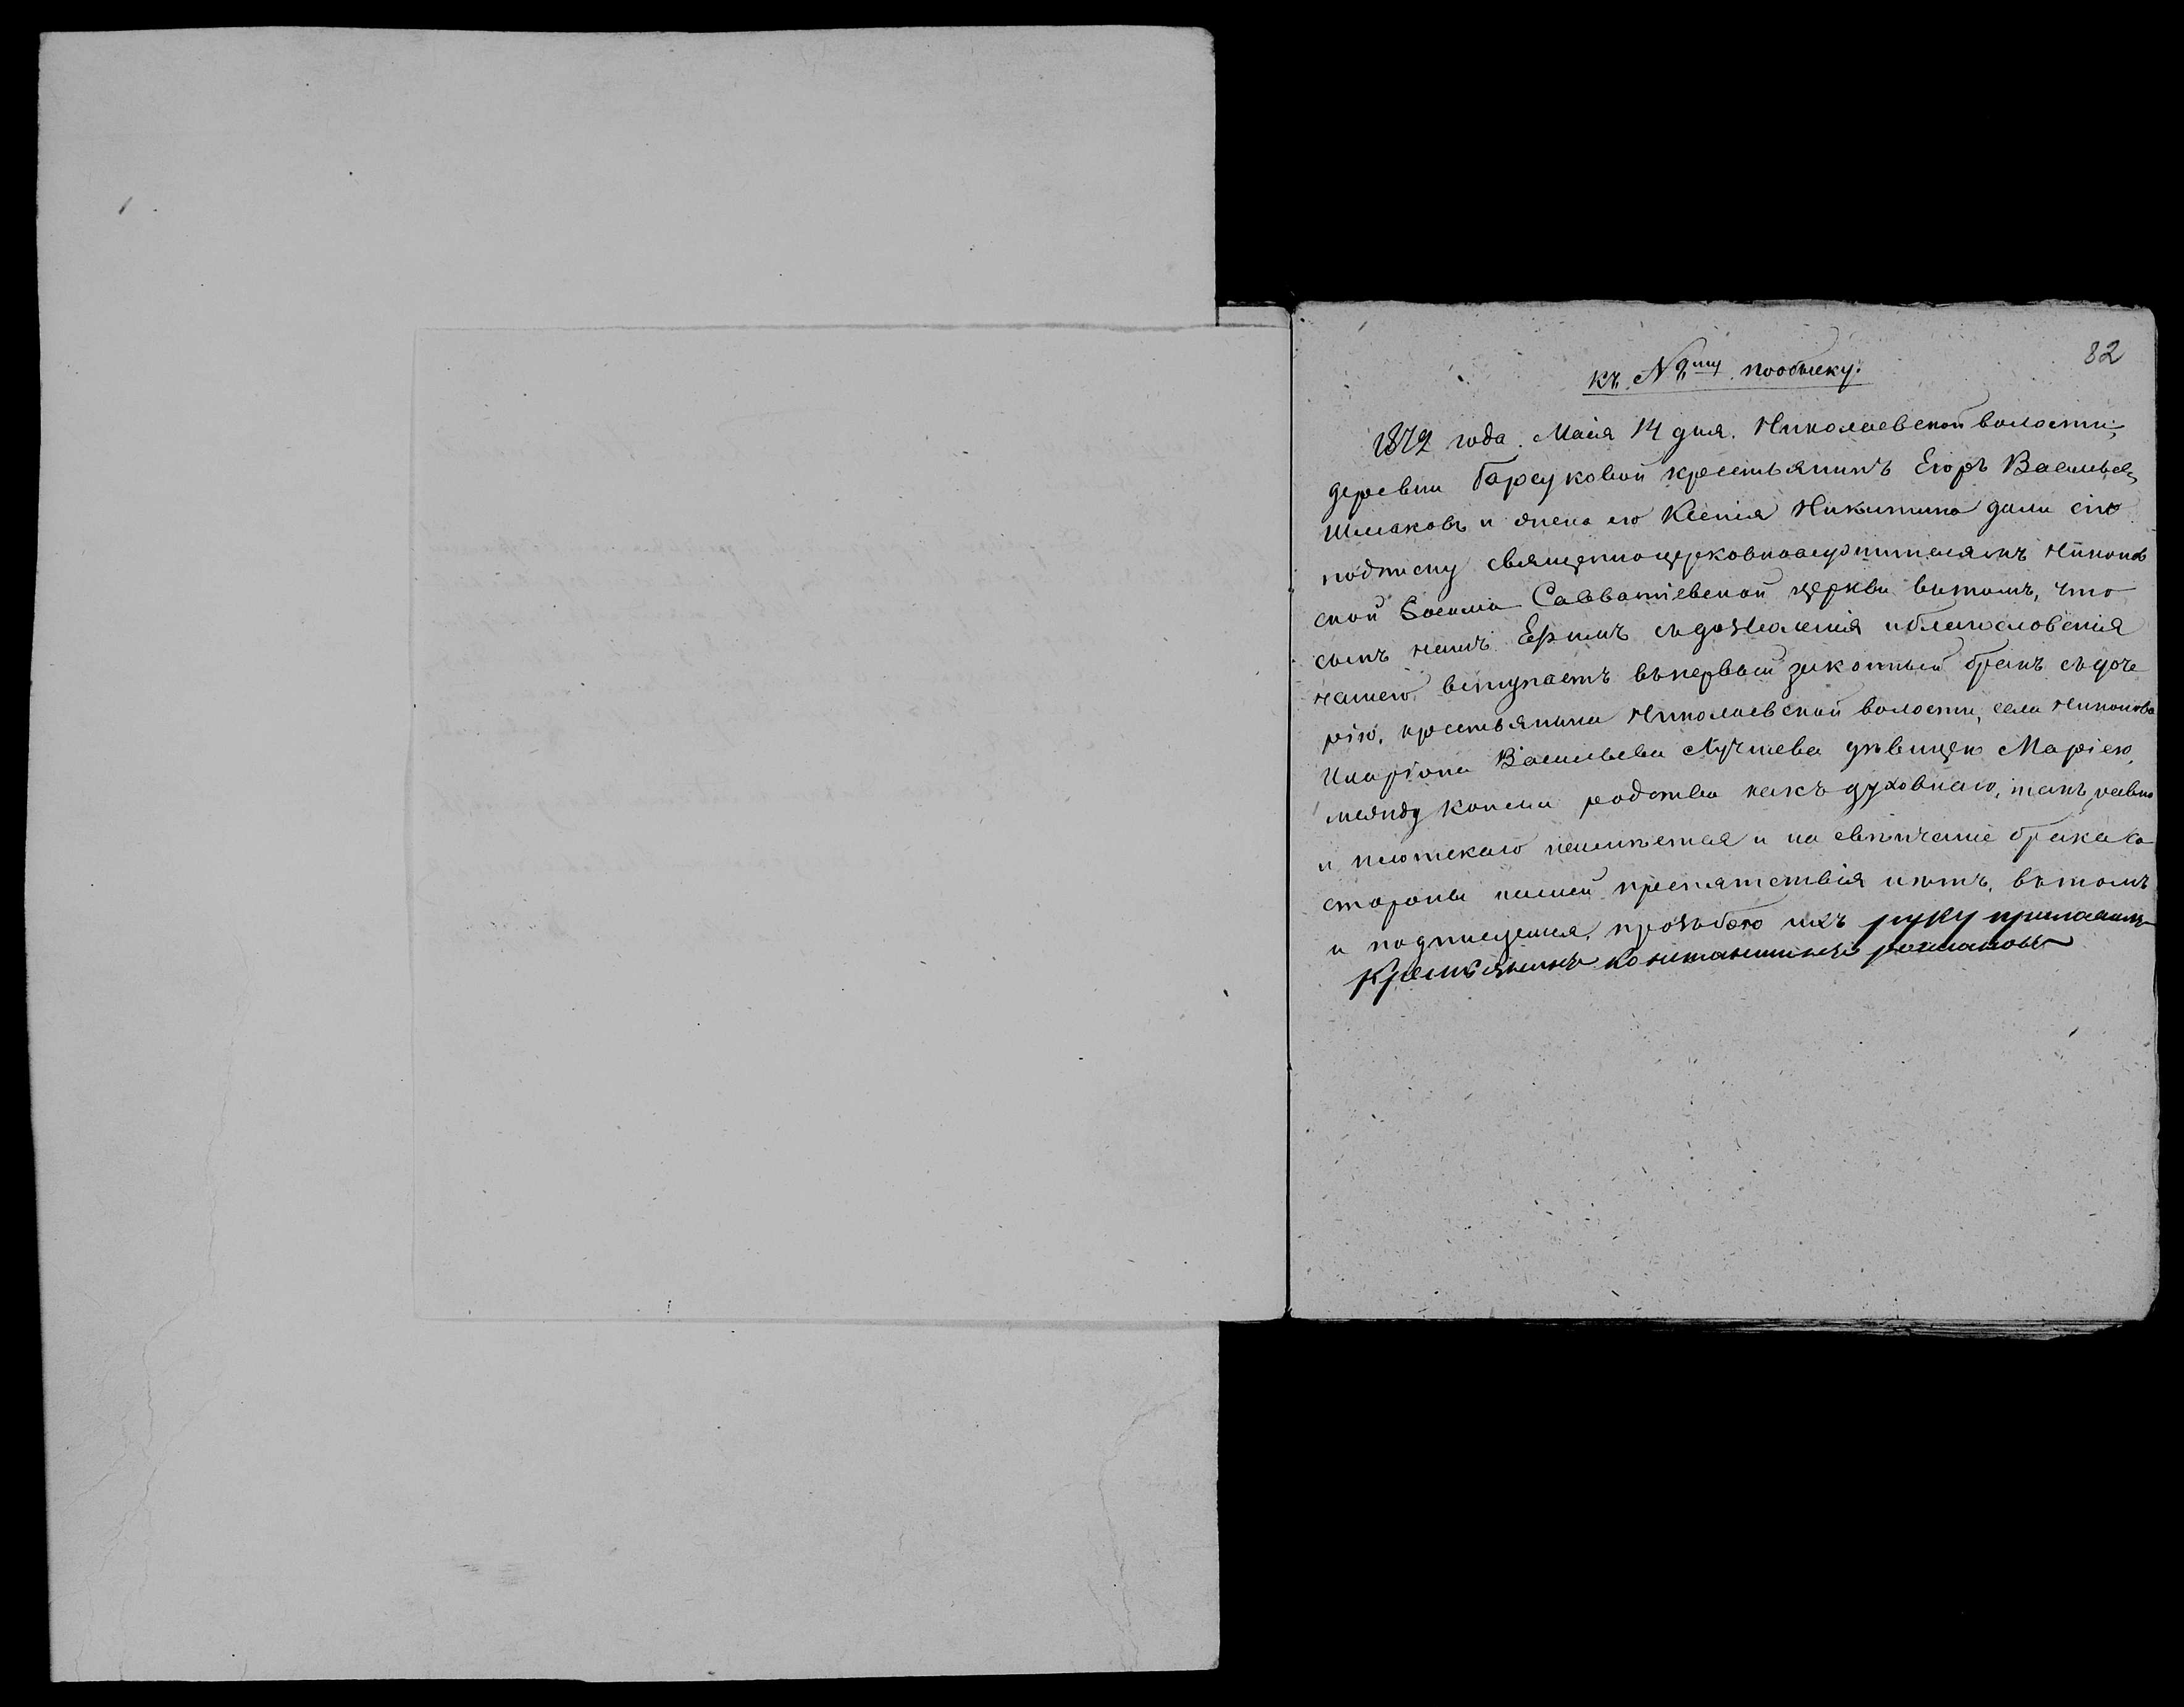 82
къ № 9му по обыску.
1872 года. Маія 14 дня. Николаевской волости,
деревни Барсуковой крестьянинъ Егоръ Васильевъ
Шмаковъ и жена его Ксенія Никитина дали сію
подписку священноцерковнослужителямъ Никонов
ской Зосимо Савватіевской церкви въ томъ, что
сынъ нашъ Ефимъ съ дозволенія и благословенія
нашего, вступаетъ въ первый законный бракъ съ доче
рію, крестьянина Николаевской волости, села Никонова
Иларіона Васильева Лучшева дѣвицею Маріею,
между коими родства какъ духовнаго, такъ равно
и плотскаго неимѣется и на свѣнчаніе брака со
стороны нашей препятствія нѣтъ, въ томъ
и подпишемся, прозьбою ихъ руку приложилъ
Крестьянинъ константинъ